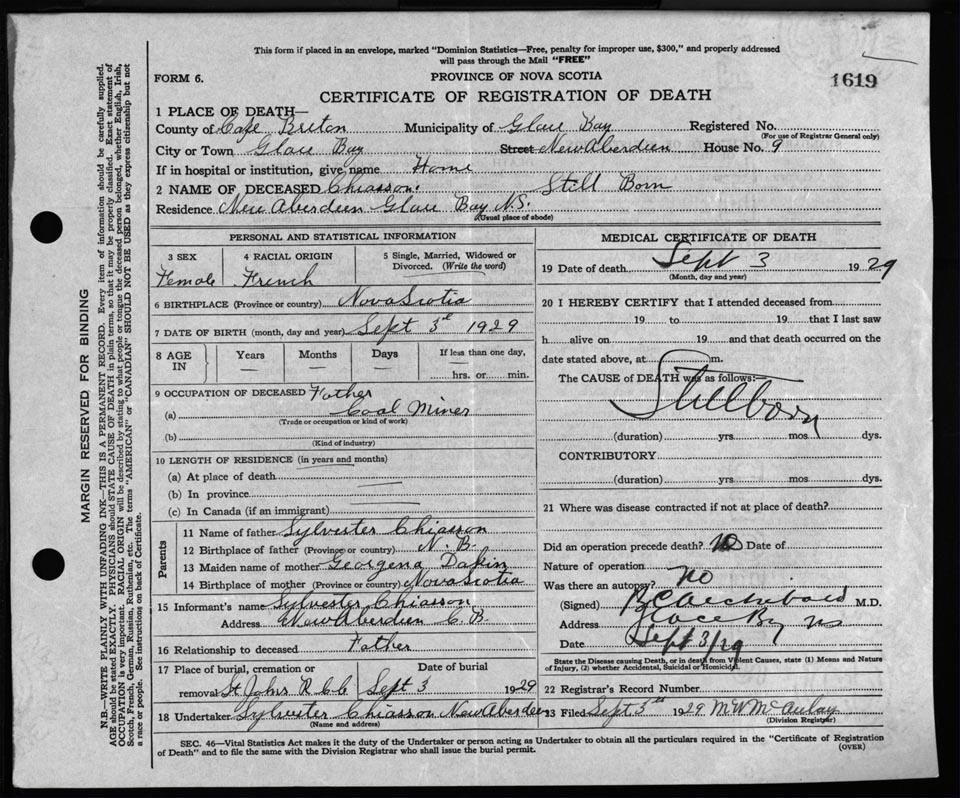 This form if placed in an envelope, marked "Dominion Statistics—Free, penalty for improper use, $300," and properly addressed
will pass through the Mail "FREE"
FORM 6.
PROVINCE OF NOVA SCOTIA
1619
CERTIFICATE OF REGISTRATION OF DEATH
1 PLACE OF DEATH—
County of Cape Breton Municipality of Glace Bay Registered No.
(For use of Registrar General only)
City or Town Glace Bay Street New Aberdeen House No. 9
If in hospital or institution, give name Home
2 NAME OF DECEASED Chiasson. Still Born
Residence New Aberdeen Glace Bay N.S.
(Usual place of abode)
PERSONAL AND STATISTICAL INFORMATION
3 SEX 4 RACIAL ORIGIN 5 Single, Married, Widowed or
Divorced. (Write the word)
Female French
6 BIRTHPLACE (Province or country) Nova Scotia
7 DATE OF BIRTH (month, day and year) Sept 3rd 1929
8 AGE IN Years Months Days If less than one day,
— — — hrs. or min.
9 OCCUPATION OF DECEASED Father
(a) Coal Miner
(Trade or occupation or kind of work)
(b)
(Kind of industry)
10 LENGTH OF RESIDENCE (in years and months)
(a) At place of death
(b) In province
(c) In Canada (if an immigrant)
Parents
11 Name of father Sylvester Chiasson
12 Birthplace of father (Province or country) N. B.
13 Maiden name of mother Georgena Dakin
14 Birthplace of mother (Province or country) Nova Scotia
15 Informant's name Sylvester Chiasson
Address New Aberdeen C. B.
16 Relationship to deceased Father
17 Place of burial, cremation or Date of burial
removal St Johns R C C Sept 3 1929
18 Undertaker Sylvester Chiasson New Aberdeen
(Name and address)
MEDICAL CERTIFICATE OF DEATH
19 Date of death Sept 3 1929
(Month, day and year)
20 I HEREBY CERTIFY that I attended deceased from
19 to 19 that I last saw
h alive on 19 and that death occurred on the
date stated above, at m.
The CAUSE of DEATH was as follows:—
Stillborn
(duration) yrs. mos. dys.
CONTRIBUTORY
(duration) yrs. mos. dys.
21 Where was disease contracted if not at place of death?
Did an operation precede death? No Date of
Nature of operation
Was there an autopsy? No
(Signed) Archibald M.D.
Address Glace Bay NS
Date Sept 3/29
State the Disease causing Death, or in death from Violent Causes, state (1) Means and Nature
of Injury, (2) whether Accidental, Suicidal or Homicidal.
22 Registrar's Record Number
23 Filed Sept 3rd 1929 M W McAulay
(Division Registrar)
SEC. 46—Vital Statistics Act makes it the duty of the Undertaker or person acting as Undertaker to obtain all the particulars required in the "Certificate of Registration
of Death" and to file the same with the Division Registrar who shall issue the burial permit.
(OVER)
MARGIN RESERVED FOR BINDING
N.B.—WRITE PLAINLY WITH UNFADING INK—THIS IS A PERMANENT RECORD. Every item of information should be carefully supplied.
AGE should be stated EXACTLY. PHYSICIANS should STATE CAUSE OF DEATH in plain terms, so that it may be properly classified. Exact statement of
OCCUPATION is very important. RACIAL ORIGIN will be described by stating to what people or tongue the deceased person belonged, whether English, Irish,
Scotch, French, German, Russian, Ruthenian, etc. The terms "AMERICAN" or "CANADIAN" SHOULD NOT BE USED as they express citizenship but not
a race or people. See instructions on back of Certificate.